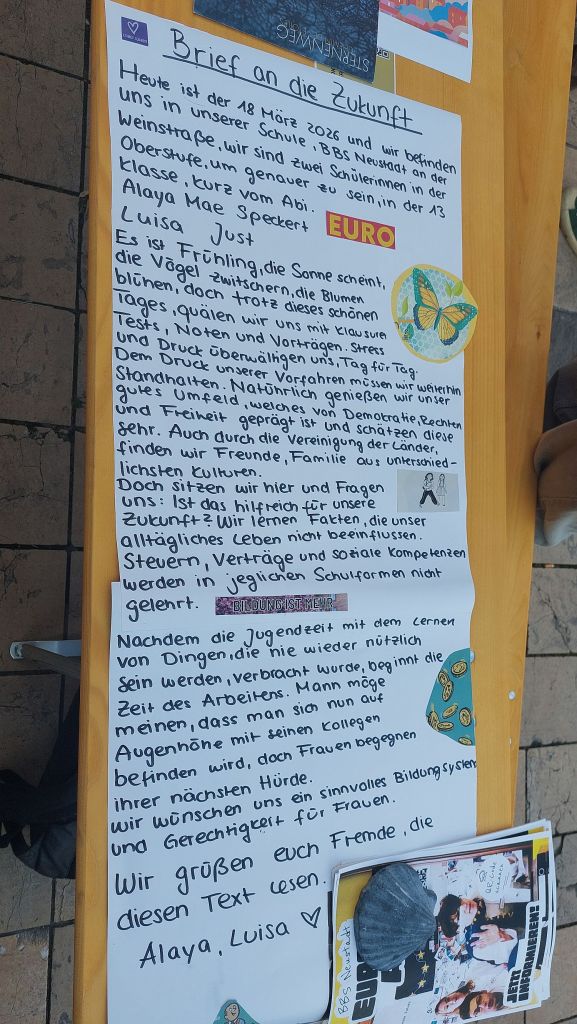 STERNENWEG
Brief an die Zukunft
Heute ist der 18 März 2026 und wir befinden
uns in unserer Schule, BBS Neustadt an der
Weinstraße, wir sind zwei Schülerinnen in der
Oberstufe, um genauer zu sein, in der 13
Klasse, kurz vom Abi.
Alaya Mae Speckert
EURO
Luisa Just
Es ist Frühling, die Sonne scheint,
die Vögel zwitschern, die Blumen
blühen, doch trotz dieses schönen
Tages, quälen wir uns mit Klausure
Tests, Noten und Vorträgen. Stress
und Druck überwältigen uns, Tag für Tag.
Dem Druck unserer Vorfahren müssen wir weiterhin
Standhalten. Natührlich genießen wir unser
gutes Umfeld, welches von Demokratie, Rechten
und Freiheit geprägt ist und schätzen diese
sehr. Auch durch die Vereinigung der Länder,
finden wir Freunde, Familie aus unterschied-
lichsten Kulturen.
Doch sitzen wir hier und Fragen
uns: Ist das hilfreich für unsere
Zukunft? Wir lernen Fakten, die unser
alltägliches Leben nicht beeinflussen.
Steuern, Verträge und soziale Kompetenzen
werden in jeglichen Schulformen nicht
gelehrt.
BILDUNG IST MEHR
Nachdem die Jugendzeit mit dem Lernen
von Dingen, die nie wieder nützlich
sein werden, verbracht wurde, beginnt die
Zeit des Arbeitens. Mann möge
meinen, dass man sich nun auf
Augenhöhe mit seinen Kollegen
befinden wird, doch Frauen begegnen
ihrer nächsten Hürde.
Wir wünschen uns ein sinnvolles Bildungsystem
und Gerechtigkeit für Frauen.
Wir grüßen euch Fremde, die
diesen Text lesen.
Alaya, Luisa ♡
BBS Neustadt
JETZT
INFORMIEREN!